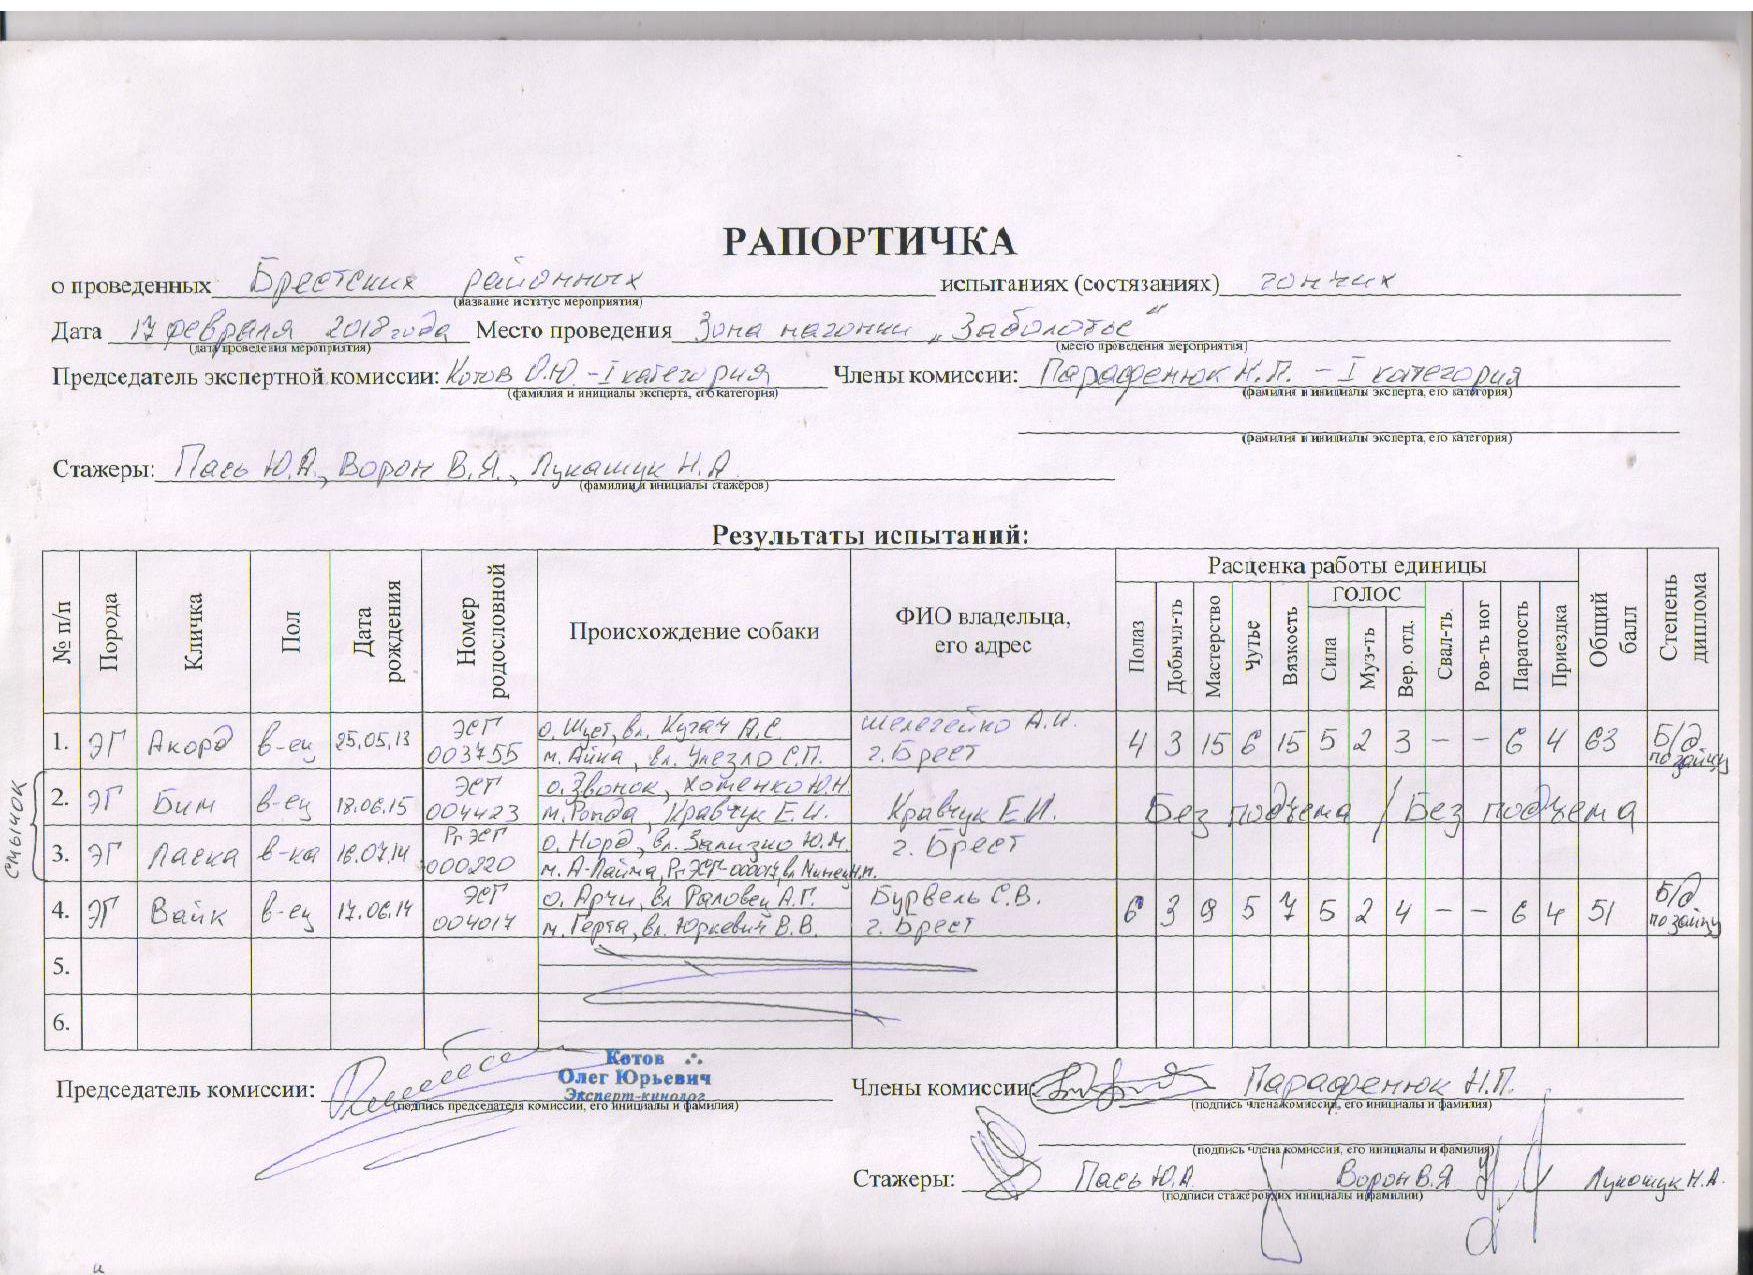 РАПОРТИЧКА
о проведенных Брестских районных испытаниях (состязаниях) гончих
(название и статус мероприятия)
Дата 17 февраля 2018 года Место проведения Зона нагонки „Заболотье“
(дата проведения мероприятия) (место проведения мероприятия)
Председатель экспертной комиссии: Котов О.Ю. - I категория Члены комиссии: Парафенюк Н.П. - I категория
(фамилия и инициалы эксперта, его категория) (фамилия и инициалы эксперта, его категория)
(фамилия и инициалы эксперта, его категория)
Стажеры: Пась Ю.А., Ворон В.Я., Лукашук Н.А
(фамилии и инициалы стажеров)
Результаты испытаний:
№ п/п Порода Кличка Пол Дата рождения Номер родословной Происхождение собаки ФИО владельца, его адрес Расценка работы единицы Общий балл Степень диплома
Полаз Добычл-ть Мастерство Чутье Вязкость ГОЛОС Сила Муз-ть Вер. отд. Свал-ть. Ров-ть ног Паратость Приездка
1. ЭГ Акорд в-ец 25.05.13 ЭСГ 003755 о. Шует, вл. Кугач А.С. Шелегейко А.И. 4 3 15 6 15 5 2 3 – – 6 4 63 Б/д по зайцу
м. Айна, вл. Унезло С.П. г. Брест
смычок
2. ЭГ Бим в-ец 18.06.15 ЭСГ 004423 о. Звонок, Хоменко Ю.Н. Кравчук Е.И. Без подъема / Без подъема
м. Ронда, Кравчук Е.И.
3. ЭГ Ласка в-ка 16.07.14 Рг ЭСГ 000220 о. Норд, вл. Зализко Ю.М. г. Брест
м. А-Лайма, Рг ЭСГ-000017, вл.
4. ЭГ Вайк в-ец 17.06.14 ЭСГ 004017 о. Арчи, вл Раловец А.Г. Бурвель С.В. 6 3 9 5 7 5 2 4 – – 6 4 51 Б/д по зайцу
м. Герта, вл. Юркевич В.В. г. Брест
5.
6.
Котов
Олег Юрьевич
Эксперт-кинолог
Председатель комиссии: Члены комиссии: Парафенюк Н.П.
(подпись председателя комиссии, его инициалы и фамилия) (подпись члена комиссии, его инициалы и фамилия)
(подпись члена комиссии, его инициалы и фамилия)
Стажеры: Пась Ю.А. Ворон В.Я Лукашук Н.А.
(подписи стажеров их инициалы и фамилии)